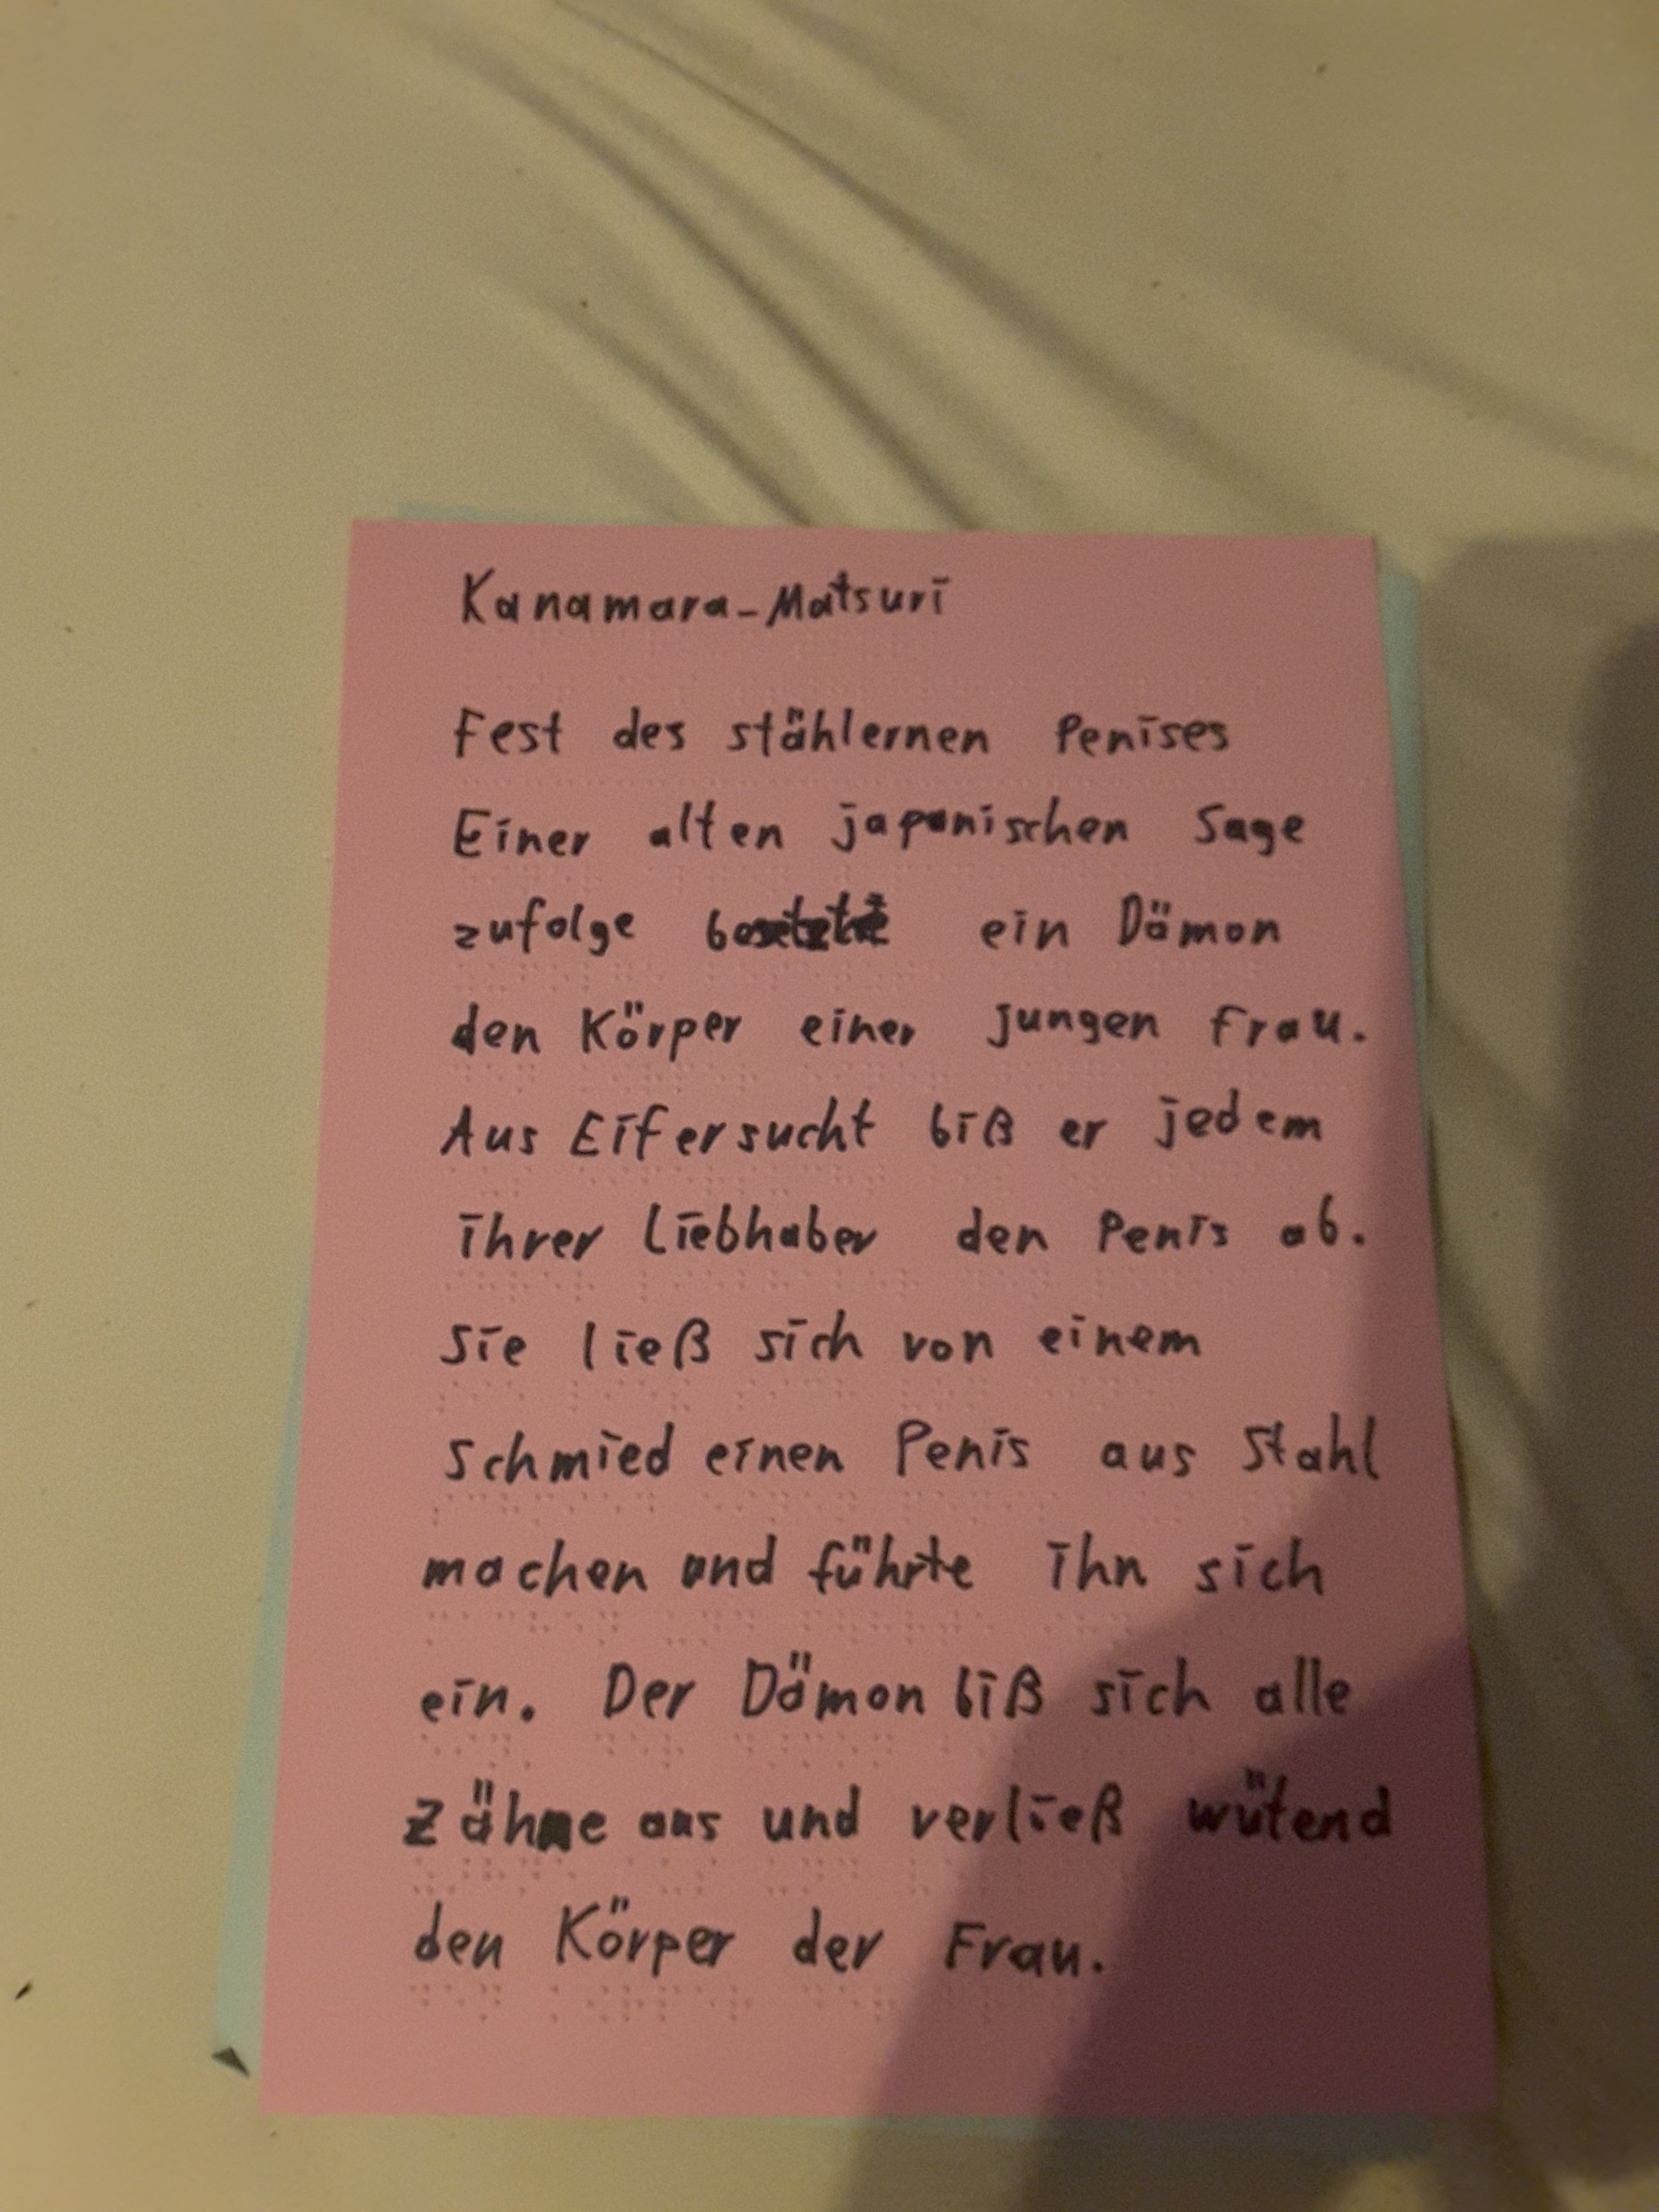 Kanamara-Matsuri
Fest des stählernen Penises
Einer alten japanischen Sage
zufolge ein Dämon
den Körper einer jungen Frau.
Aus Eifersucht biß er jedem
ihrer Liebhaber den Penis ab.
Sie ließ sich von einem
Schmied einen Penis aus Stahl
machen und führte ihn sich
ein. Der Dämon biß sich alle
Zähne aus und verließ wütend
den Körper der Frau.